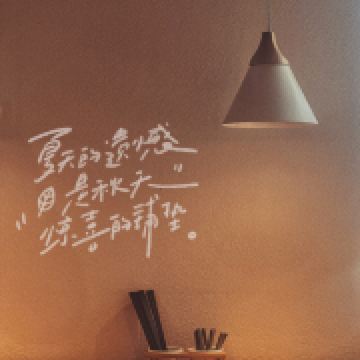 夏天的遗憾
是秋天”
“惊喜的铺垫。